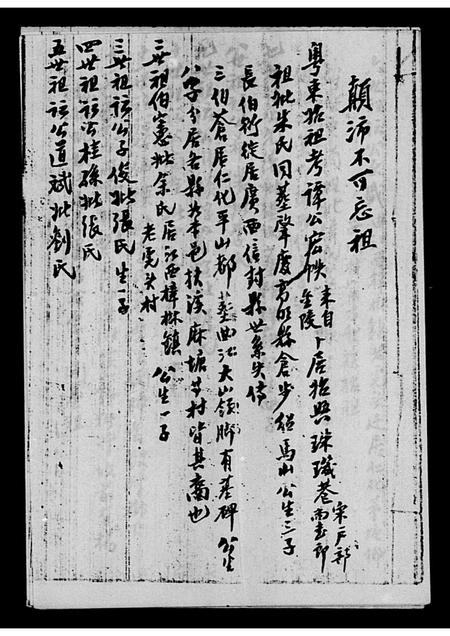 顛沛不可忘祖
粤東始祖考諱公宕帙来自金陵卜居始興珠璣巷宋戶部尚書郎
祖妣朱氏同墓肇慶高明縣倉步經馬山公生三子
長伯衍徙居廣西信封縣世系失傳
三伯蒼居仁化平山都墓曲江大山嶺脚有墓碑公生
八子分居各縣本邑扶溪麻塘等村皆其裔也
三世祖伯憲妣余氏居江西樟林鎮老虎头村公生一子
三世祖諱公子俊妣張氏生一子
四世祖諱公桂孫妣張氏
五世祖諱公道斌妣劉氏